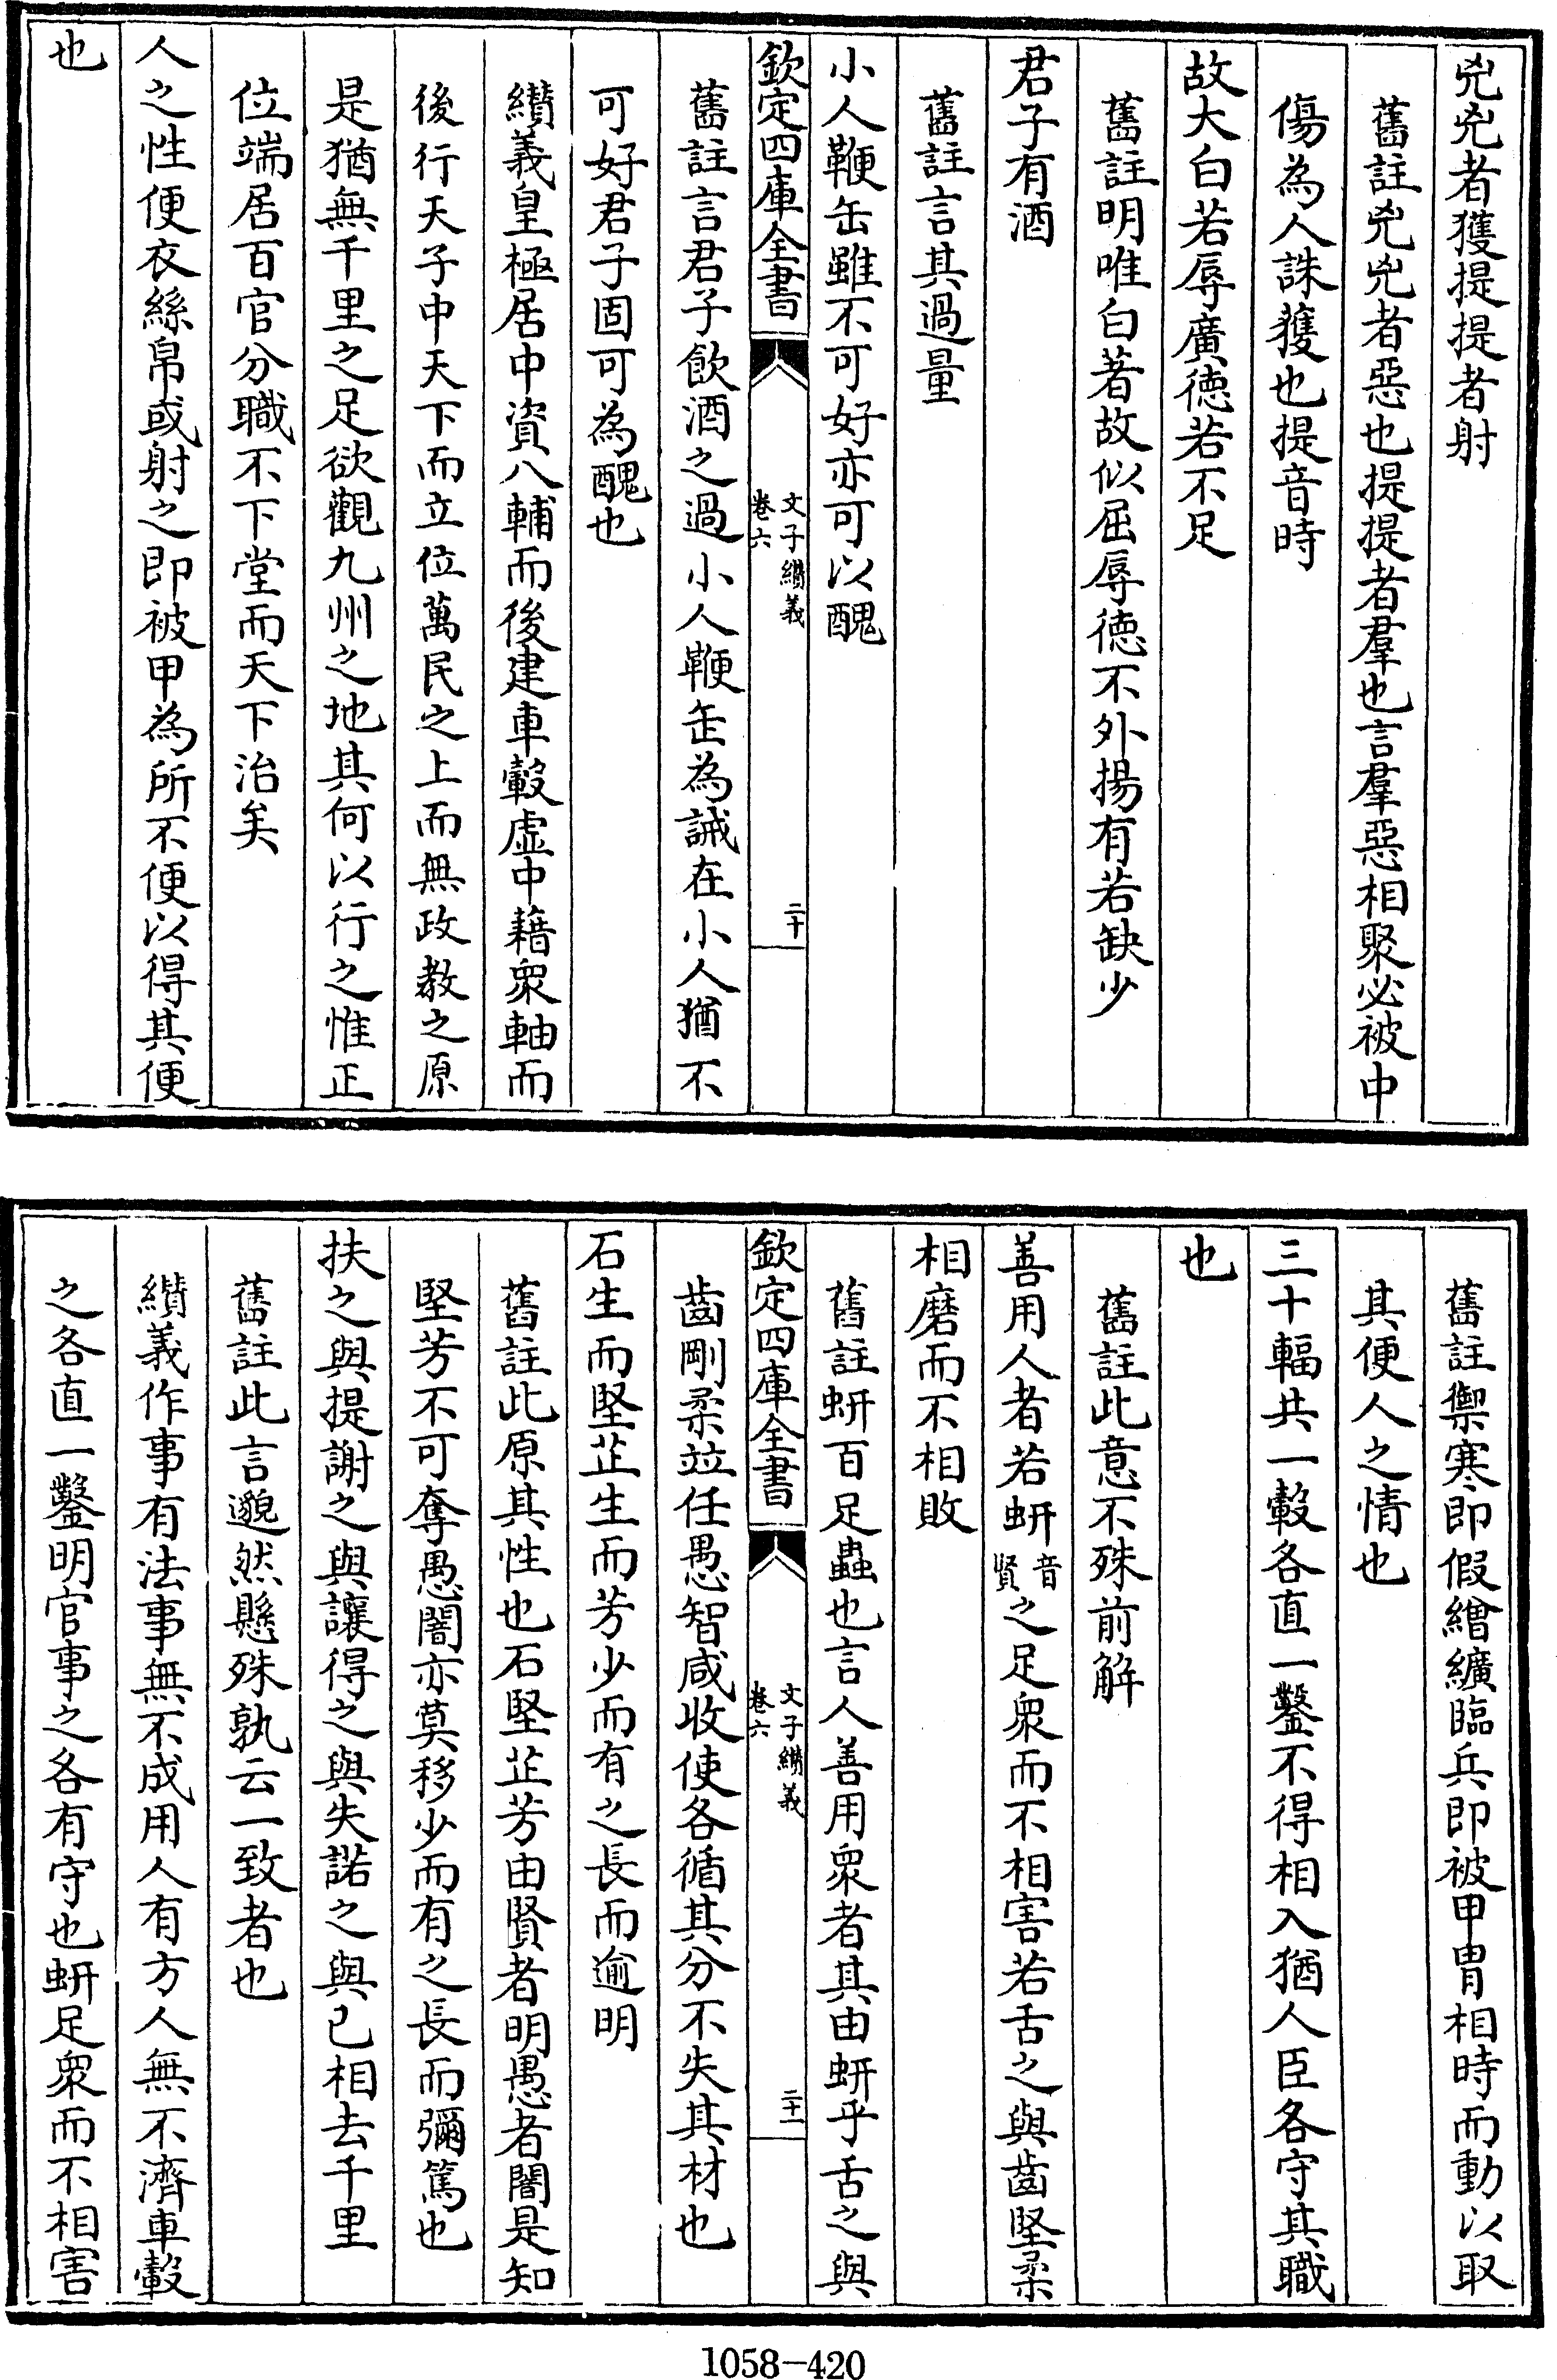 兇兇者獲提提者射
舊註兇兇者惡也提提者羣也言羣惡相聚必被中
傷為人誅獲也提音時
故大白若辱廣徳若不足
舊註明唯白著故似屈辱徳不外揚有若缺少
君子有酒
舊註言其過量
小人鞭缶雖不可好亦可以醜
欽定四庫全書 文子纘義 卷六 二十
舊註言君子飲酒之過小人鞭缶為誡在小人猶不
可好君子固可為醜也
纘義皇極居中資八輔而後建車轂虛中藉衆軸而
後行天子中天下而立位萬民之上而無政教之原
是猶無千里之足欲觀九州之地其何以行之惟正
位端居百官分職不下堂而天下治矣
人之性便衣絲帛或射之即被甲為所不便以得其便
也
舊註禦寒即假繒纊臨兵即被甲胄相時而動以取
其便人之情也
三十輻共一轂各直一鑿不得相入猶人臣各守其職
也
舊註此意不殊前解
善用人者若蚈音賢之足衆而不相害若舌之與齒堅柔
相磨而不相敗
舊註蚈百足蟲也言人善用衆者其由蚈乎舌之與
欽定四庫全書 文子纘義 卷六 二十一
齒剛柔竝任愚智咸收使各循其分不失其材也
石生而堅芷生而芳少而有之長而逾明
舊註此原其性也石堅芷芳由賢者明愚者闇是知
堅芳不可奪愚闇亦莫移少而有之長而彌篤也
扶之與提謝之與讓得之與失諾之與已相去千里
舊註此言邈然懸殊孰云一致者也
纘義作事有法事無不成用人有方人無不濟車轂
之各直一鑿明官事之各有守也蚈足衆而不相害
1058-420